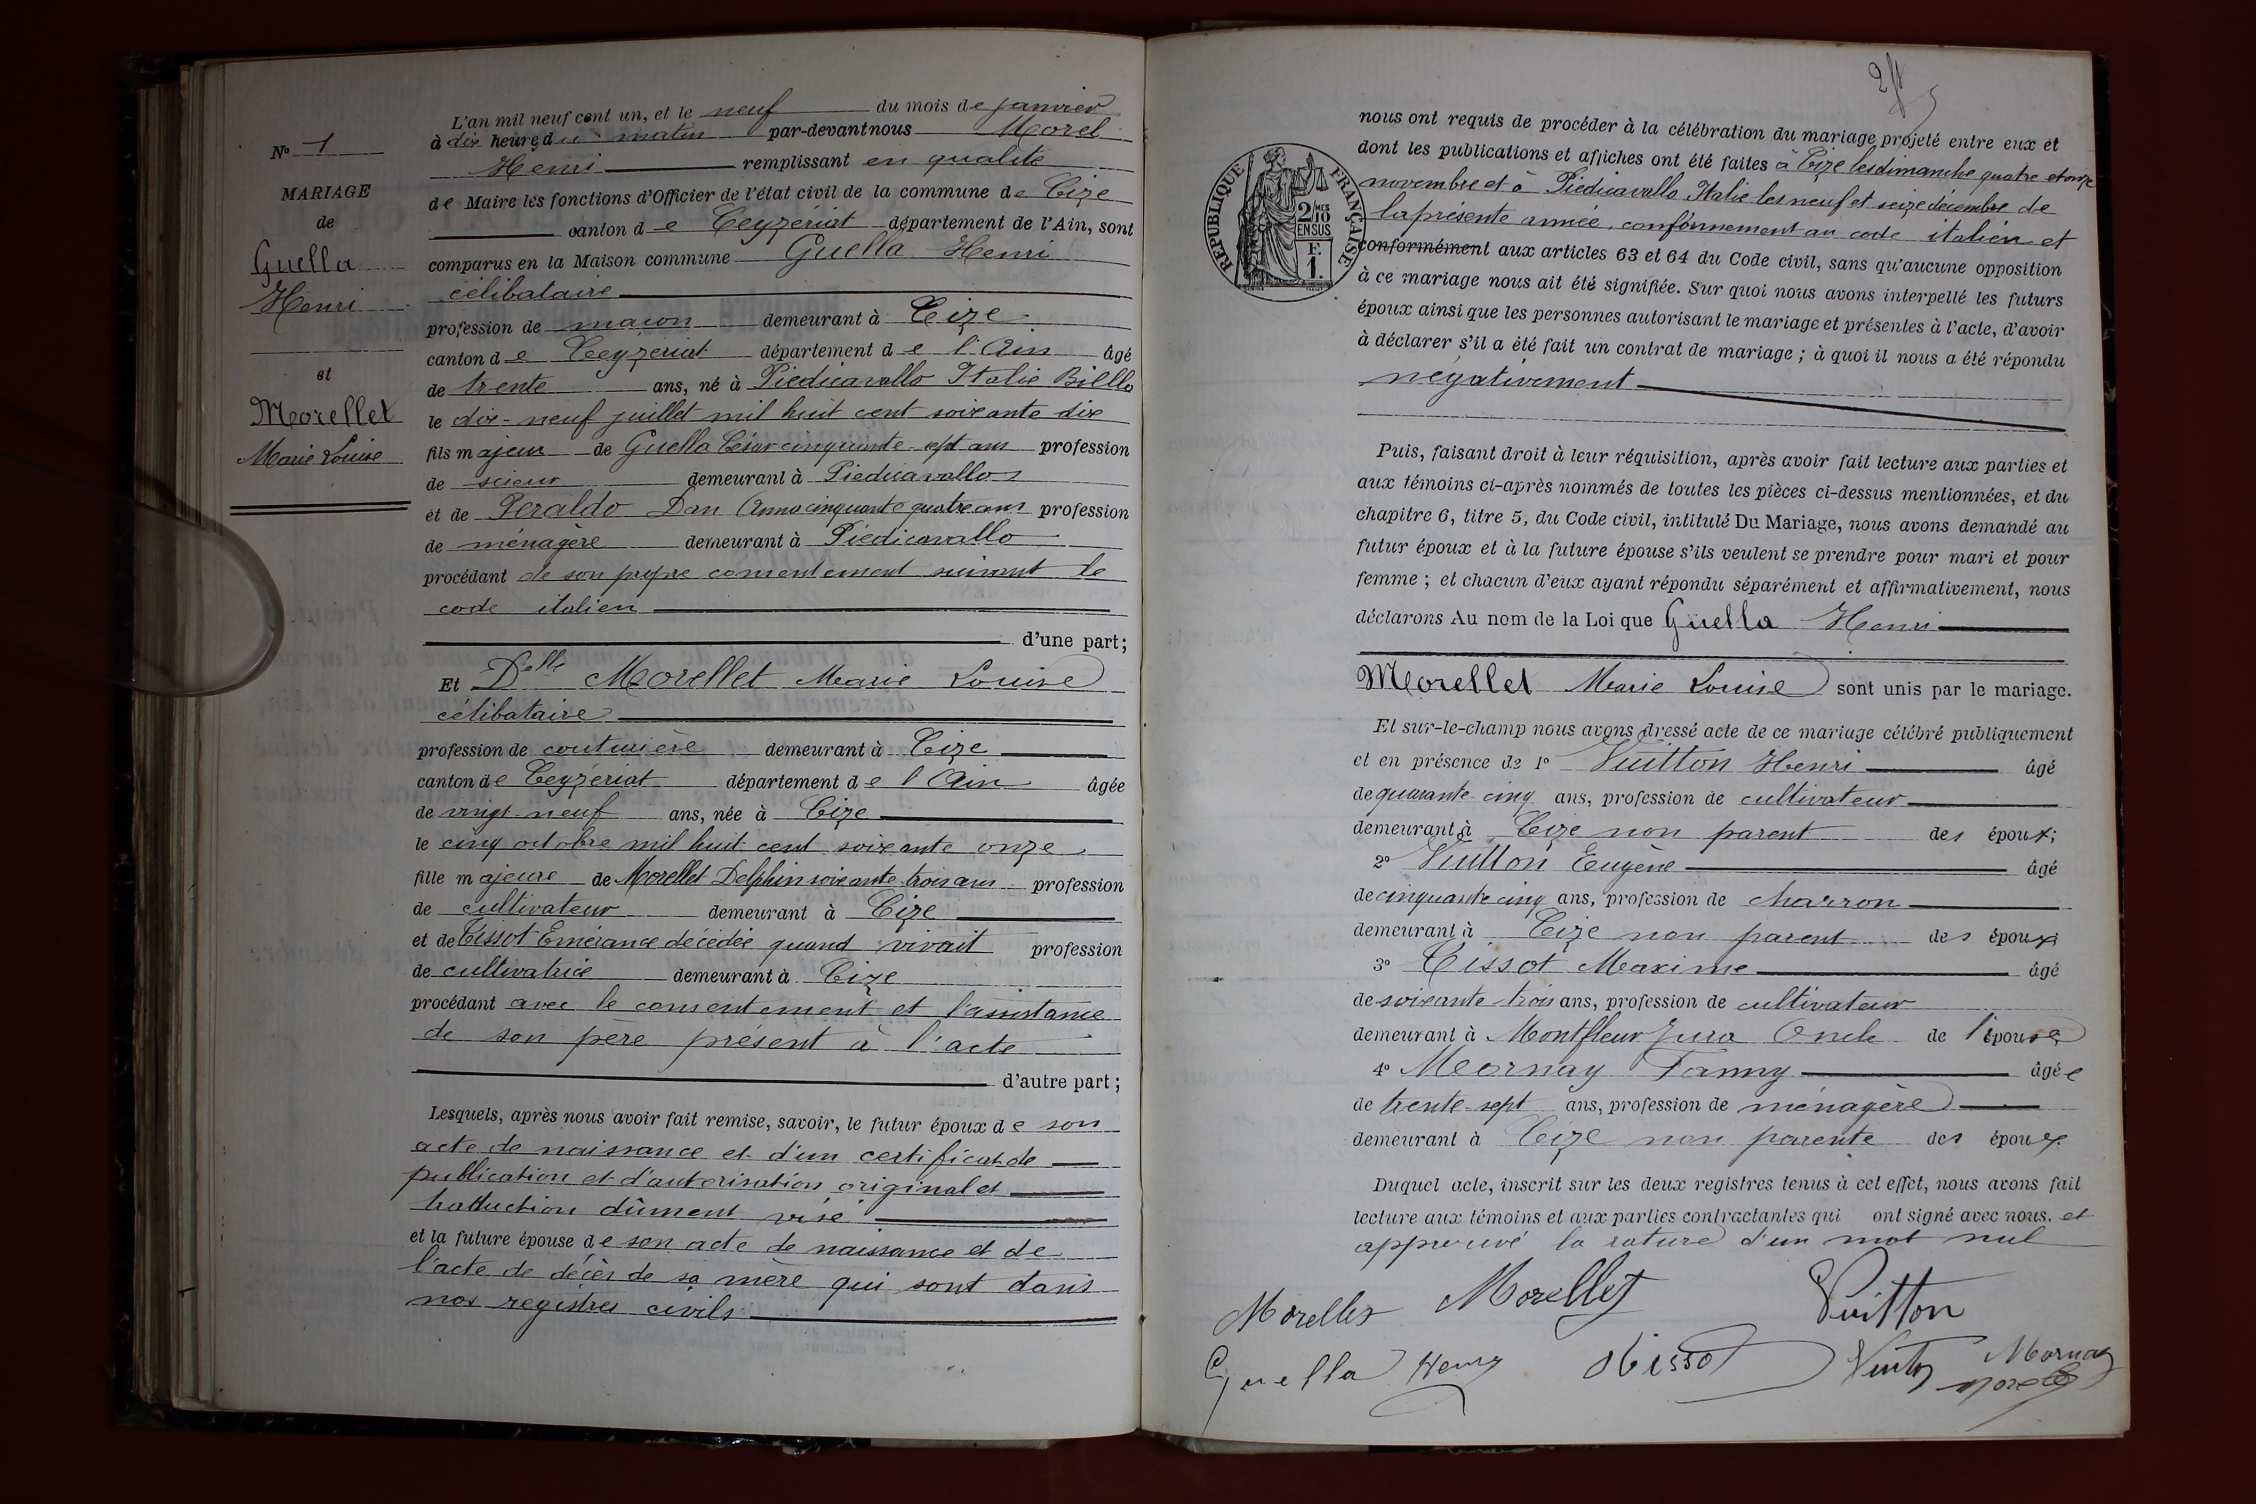 L'an mil neuf cent un, et le neuf du mois de janvier
à dix heure du matin par-devant nous Morel
Henri remplissant en qualité
de Maire les fonctions d'Officier de l'état civil de la commune de Cize
canton de Ceyzeriat département de l'Ain, sont
comparus en la Maison commune Guella Henri
célibataire
profession de maçon demeurant à Cize
canton de Ceyzeriat département de l'Ain âgé
de trente ans, né à Piedicavallo Italie Biello
le dix-neuf juillet mil huit cent soixante dix
fils majeur de Guella César cinquante-sept ans profession
de scieur demeurant à Piedicavallo
et de Peraldo Dan Anna cinquante quatre ans profession
de ménagère demeurant à Piedicavallo
procédant de son propre consentement suivant le
code italien
d'une part;
Et Delle Morellet Marie Louise
célibataire
profession de couturière demeurant à Cize
canton de Ceyzériat département de l'Ain âgée
de vingt-neuf ans, née à Cize
le cinq octobre mil huit cent soixante onze
fille majeure de Morellet Delphin soixante trois ans profession
de cultivateur demeurant à Cize
et de Tissot Emérance décédée quand vivait profession
de cultivatrice demeurant à Cize
procédant avec le consentement et l'assistance
de son père présent à l'acte
d'autre part;
Lesquels, après nous avoir fait remise, savoir, le futur époux de son
acte de naissance et d'un certificat de
publication et d'autorisation original et
traduction dûment visé
et la future épouse de son acte de naissance et de
l'acte de décès de sa mère qui sont dans
nos registres civils
No 1
MARIAGE
de
Guella
Henri
et
Morellet
Marie Louise
RÉPUBLIQUE FRANÇAISE
2 MES
10
EN SUS
F.
1.
nous ont requis de procéder à la célébration du mariage projeté entre eux et
dont les publications et affiches ont été faites à Cize les dimanche quatre et onze
novembre et à Piedicavallo Italie les neuf et seize décembre de
la présente année, conformément au code italien et
conformément aux articles 63 et 64 du Code civil, sans qu'aucune opposition
à ce mariage nous ait été signifiée. Sur quoi nous avons interpellé les futurs
époux ainsi que les personnes autorisant le mariage et présentes à l'acte, d'avoir
à déclarer s'il a été fait un contrat de mariage; à quoi il nous a été répondu
négativement
Puis, faisant droit à leur réquisition, après avoir fait lecture aux parties et
aux témoins ci-après nommés de toutes les pièces ci-dessus mentionnées, et du
chapitre 6, titre 5, du Code civil, intitulé Du Mariage, nous avons demandé au
futur époux et à la future épouse s'ils veulent se prendre pour mari et pour
femme; et chacun d'eux ayant répondu séparément et affirmativement, nous
déclarons Au nom de la Loi que Guella Henri
Morellet Marie Louise sont unis par le mariage.
Et sur-le-champ nous avons dressé acte de ce mariage célébré publiquement
et en présence de 1° Vuitton Henri âgé
de quarante-cinq ans, profession de cultivateur
demeurant à Cize non parent des époux;
2° Vuitton Eugène âgé
de cinquante cinq ans, profession de charron
demeurant à Cize non parent des époux
3° Tissot Maxime âgé
de soixante-trois ans, profession de cultivateur
demeurant à Montfleur Jura Oncle de l'épouse
4° Mornay Fanny âgée
de trente-sept ans, profession de ménagère
demeurant à Cize non parente des époux.
Duquel acte, inscrit sur les deux registres tenus à cet effet, nous avons fait
lecture aux témoins et aux parties contractantes qui ont signé avec nous. et
approuvé la rature d'un mot nul
Morellet Morellet Vuitton
Guella Henry Tissot Vuitton Mornay
Morel